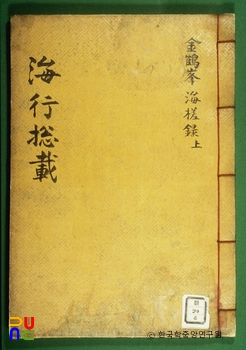 金鶴峯海槎錄 上
海行摠載
ⓒ 한국학중앙연구원